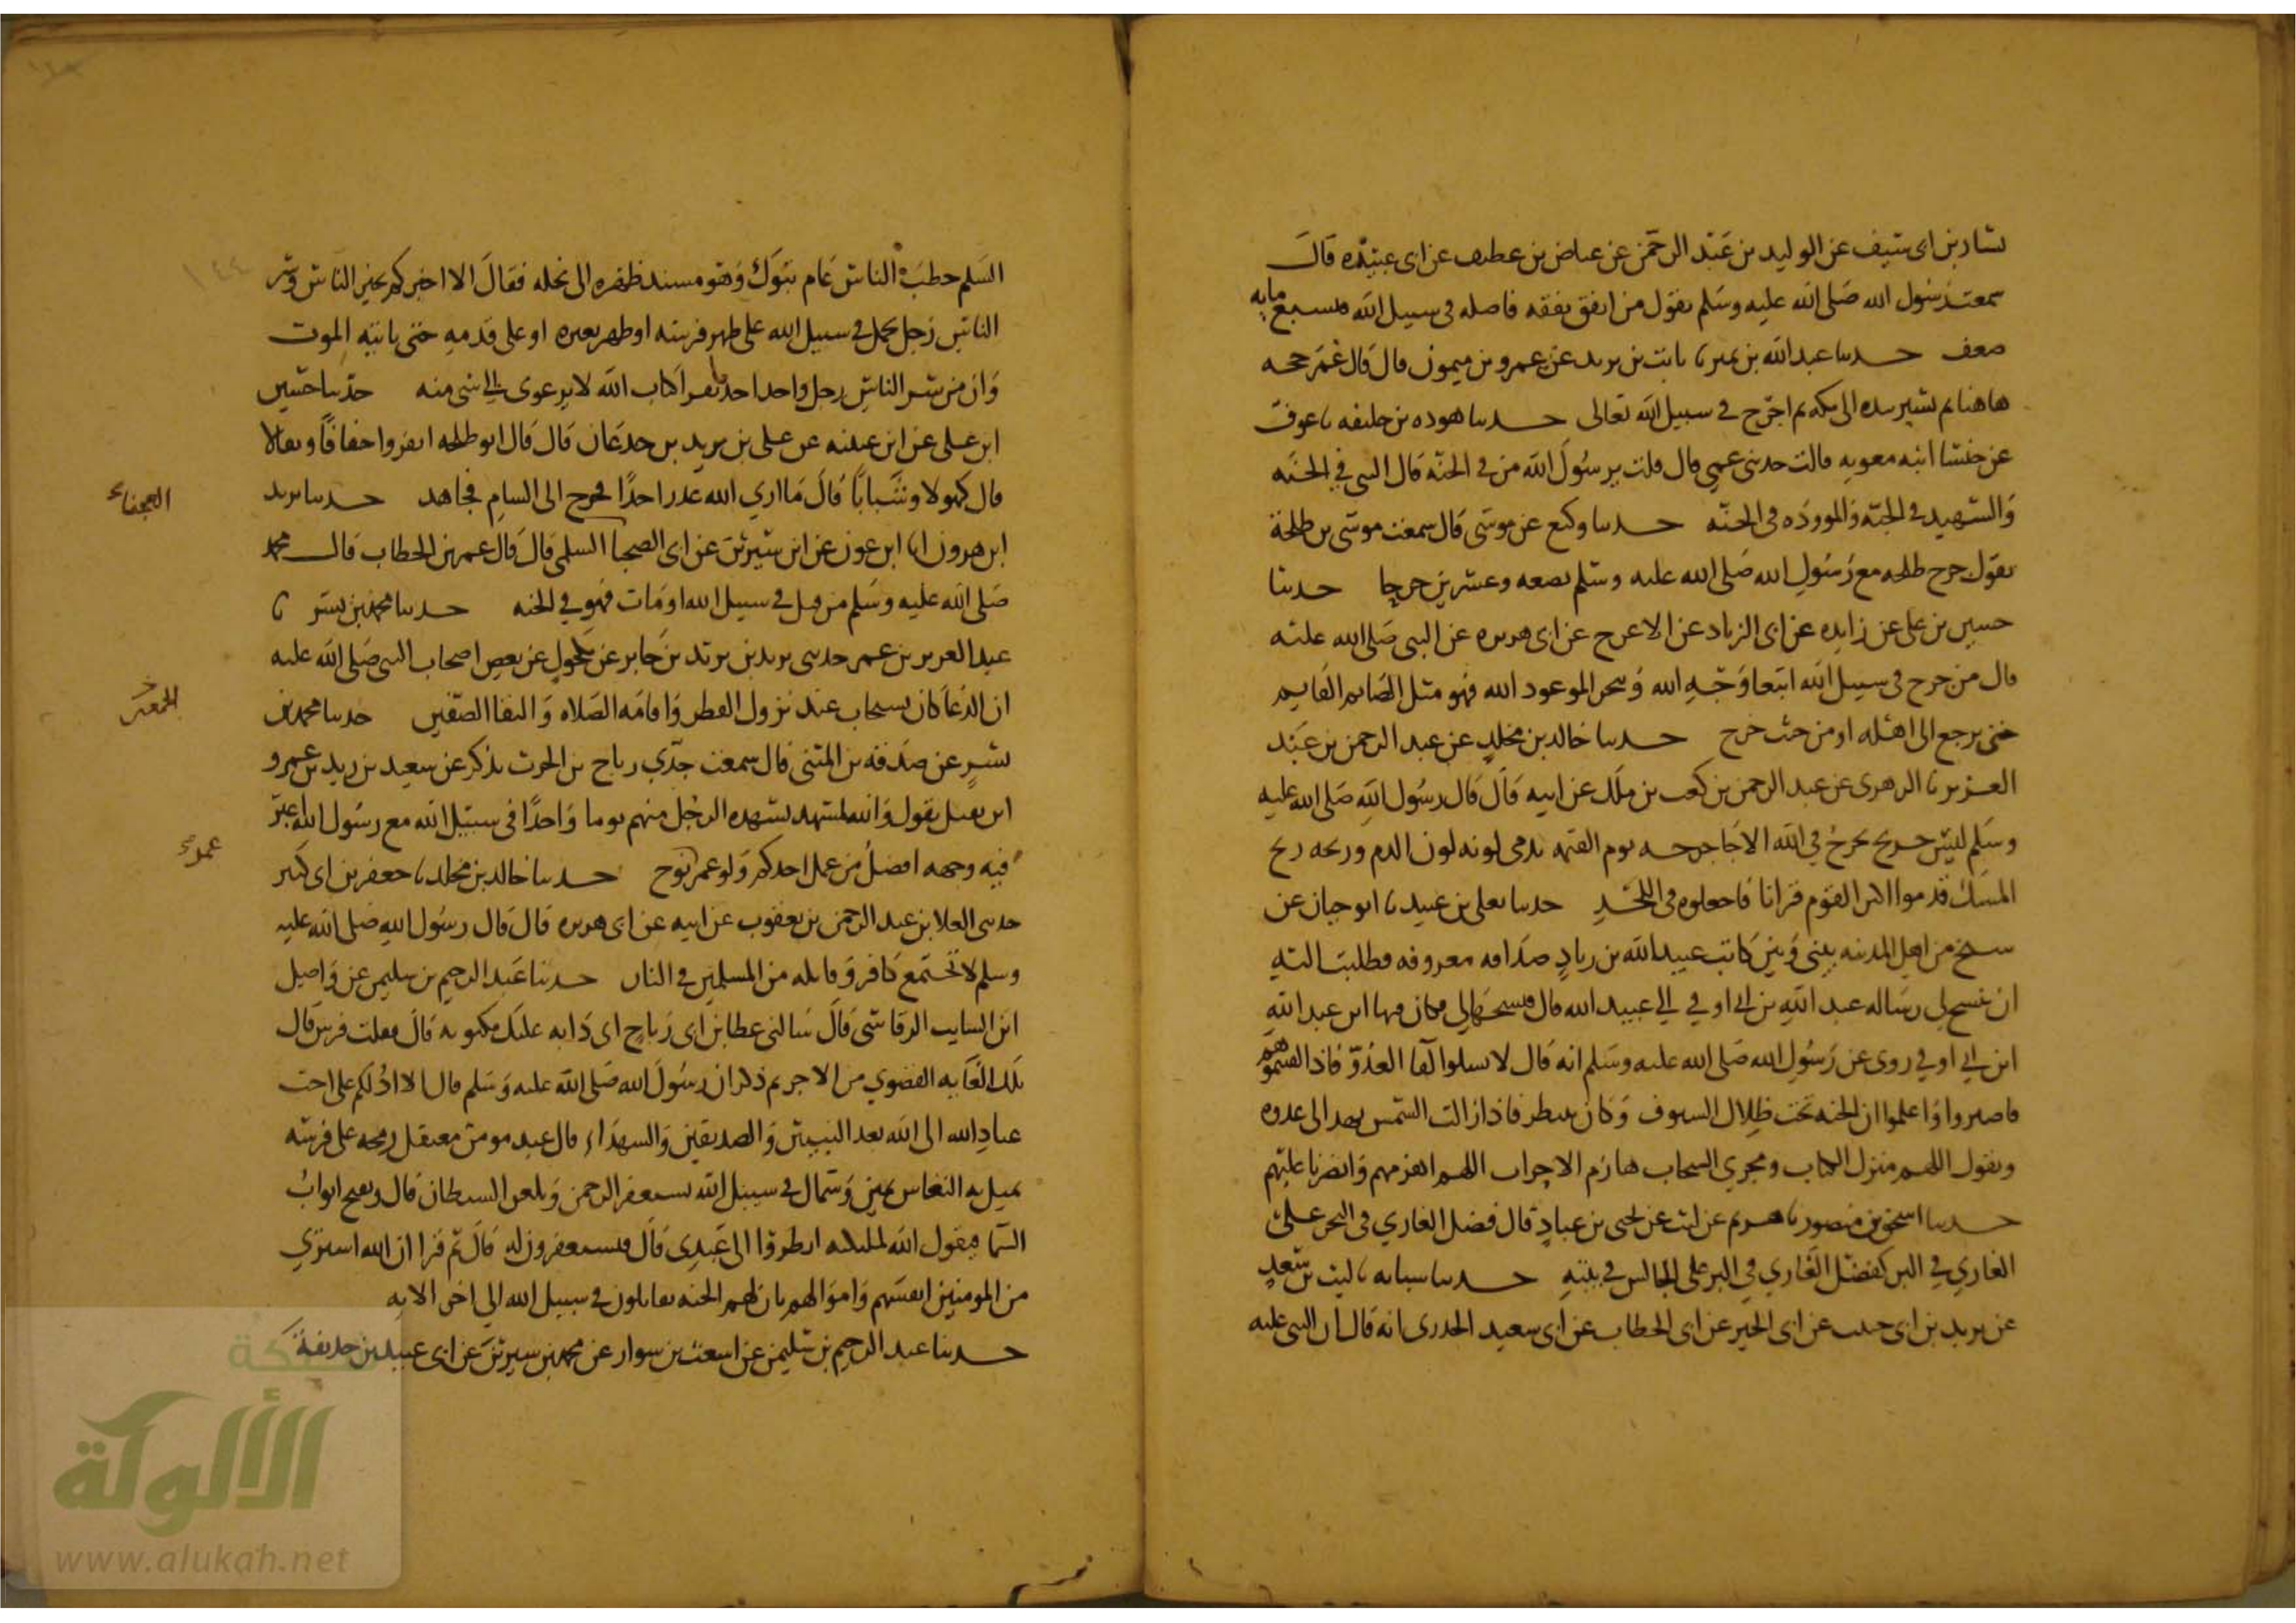 بشار بن ابى سيف عن الوليد بن عبد الرحمن عن عياض بن عطيف عن ابى عبيده قال
سمعت رسول الله صلى الله عليه وسلم يقول من انفق نفقه فاصله فى سبيل الله فبسبع مايه
ضعف حدثنا عبد الله بن نمير نا ثابت بن يزيد عن عمرو بن ميمون قال قال عمر حجه
هاهنا ثم يشير بيده الى مكه ثم اخرج فى سبيل الله تعالى حدثنا هوده بن خليفه نا عوف
عن خنسا ابنه معويه قالت حدثنى عمى قال قلت يرسول الله من فى الجنه قال النبى فى الجنه
والشهيد فى الجنه والمووده فى الجنه حدثنا وكيع عن موسى قال سمعت موسى بن طلحة
يقول جرح طلحه مع رسول الله صلى الله عليه وسلم بضعه وعشرين جرحا حدثنا
حسين بن على عن زايده عن ابى الزناد عن الاعرج عن ابى هريره عن النبى صلى الله عليه
قال من خرج فى سبيل الله ابتغا وجه الله وتنجز الموعود الله فهو مثل الصايم القايم
حتى يرجع الى اهله او من حيث خرج حدثنا خالد بن مخلد عن عبد الرحمن بن عبد
العزيز نا الزهرى عن عبد الرحمن بن كعب بن ملك عن ابيه قال قال رسول الله صلى الله عليه
وسلم ليس جريح يجرح فى الله الا جا جرحه يوم القيمه يدمى لونه لون الدم وريحه ريح
المسك قدموا اكثر القوم قرانا فاجعلوه فى اللحد حدثنا يعلى بن عبيد نا ابو حيان عن
شيخ من اهل المدينه بينى وبين كاتب عبيد الله بن زياد صداقه معروفه فطلبت اليه
ان ينسخ لى رساله عبد الله بن ابى اوفى الى عبيد الله قال فنسخها لى فكان فيها ابن عبد الله
ابن ابى اوفى روى عن رسول الله صلى الله عليه وسلم انه قال لا تسلوا لقا العدو فاذا لقيتموهم
فاصبروا واعلموا ان الجنه تحت ظلال السيوف وكان ينتظر فاذا زالت الشمس نهد الى عدوه
ويقول اللهم منزل الكتاب ومجرى السحاب هازم الاحزاب اللهم اهزمهم وانصرنا عليهم
حدثنا اسحق بن منصور نا هريم عن ليث عن يحيى بن عباد قال فضل الغازى فى البحر على
الغازى فى البر كفضل الغازى فى البر على الجالس فى بيته حدثنا شبابه نا ليث بن سعد
عن يزيد بن ابى حبيب عن ابى الخير عن ابى الخطاب عن ابى سعيد الخدرى انه قال ان النبى عليه
السلم خطب الناس عام تبوك وهو مسند ظهره الى نخله فقال الا اخبركم بخير الناس وشر
الناس رجل يحمل فى سبيل الله على ظهر فرسه او ظهر بعيره او على قدمه حتى ياتيه الموت
وان من شر الناس رجل واحدا حد يقرا كتاب الله لا يرعوى الى شى منه حدثنا حسين
ابن على عن ابن عيينه عن على بن يزيد بن جدعان قال قال ابو طلحه انفروا خفافا وثقالا
قال كهولا وشبابا قال ما ارى الله عذر احدا فخرج الى الشام فجاهد حدثنا يزيد
ابن هرون انا ابن عون عن ابن سيرين عن ابى الصحبا السلمى قال قال عمر بن الخطاب قال محمد
صلى الله عليه وسلم من قتل فى سبيل الله او مات فهو فى الجنه حدثنا محمد بن بشر نا
عبد العزيز بن عمر حدثنى يزيد بن يزيد بن جابر عن مكحول عن بعض اصحاب النبى صلى الله عليه
ان الدعا كان يستجاب عند نزول القطر واقامه الصلاه والتقا الصفين حدثنا محمد بن
بشر عن صدقه بن المثنى قال سمعت جدى رياح بن الحرث يذكر عن سعيد بن زيد بن عمرو
ابن نفيل يقول والله لمشهد يشهده الرجل منهم يوما واحدا فى سبيل الله مع رسول الله اغبر
فيه وجهه افضل من عمل احدكم ولو عمر نوح حدثنا خالد بن مخلد نا جعفر بن ابى كثير
حدثنى العلا بن عبد الرحمن بن يعقوب عن ابيه عن ابى هريره قال قال رسول الله صلى الله عليه
وسلم لا تجتمع كافر وقاتله من المسلمين فى النار حدثنا عبد الرحيم بن سليمن عن واصل
ابن السايب الرقاشى قال سالنى عطا بن ابى رباح اى دابه عليك مكتوبه قال فقلت فرس قال
تلك الغايه القصوى من الاجر ثم ذكر ان رسول الله صلى الله عليه وسلم قال الا ادلكم على احب
عباد الله الى الله بعد النبيين والصديقين والشهداء قال عبد مومن معتقل رمحه على فرسه
يميل به النعاس يمين وشمال فى سبيل الله يستغفر الرحمن ويلعن الشيطان قال وتفتح ابواب
السما فيقول الله لمليكته انظروا الى عبدى قال فيستغفرون له قال ثم قرا ان الله اشترى
من المومنين انفسهم واموالهم بان لهم الجنه يقاتلون فى سبيل الله الى اخر الايه
حدثنا عبد الرحيم بن سليمن عن اشعث بن سوار عن محمد بن سيرين عن ابى عبيد بن حذيفة
العجفاء
عمله
شبكة
الألوكة
www.alukah.net